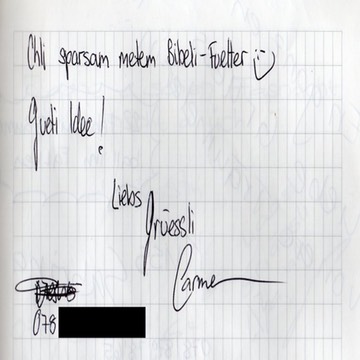 Chli sparsam metem Bibeli-Fuetter :-)
Gueti Idee!
Liebs
Grüessli
Carmen
078